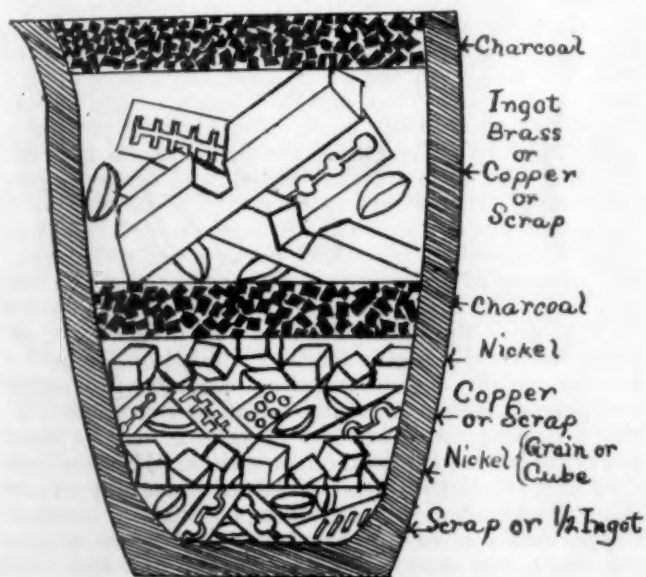 Charcoal
Ingot
Brass
or
Copper
or
Scrap
Charcoal
Nickel
Copper
or Scrap
Nickel { Grain or
Cube
Scrap or 1/2 Ingot